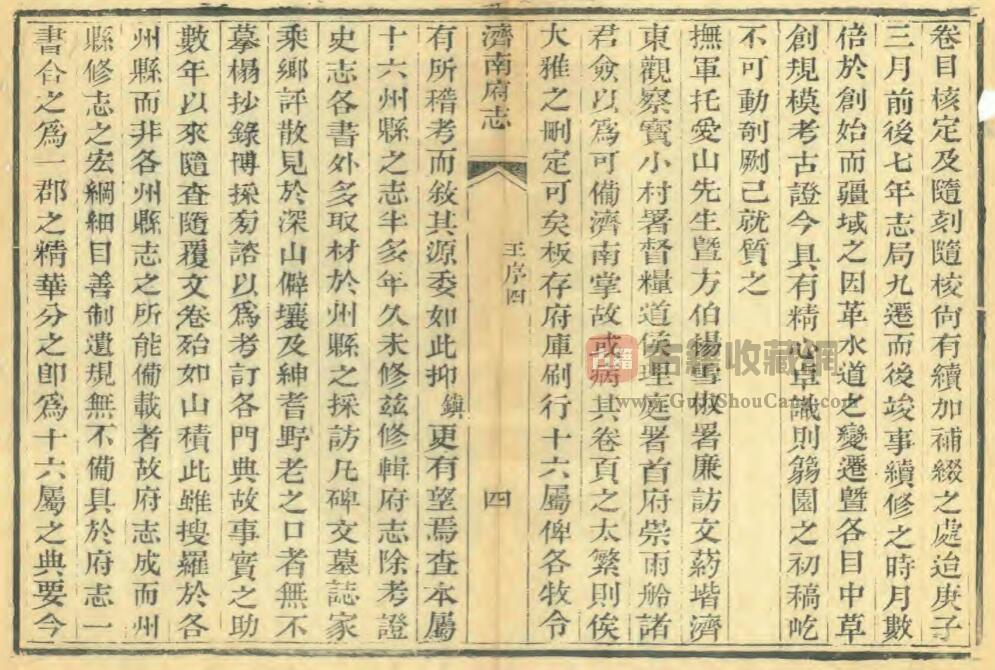 卷目核定及隨刻隨校尙有續加補綴之處迨庚子
三月前後七年志局九遷而後竣事續修之時月數
倍於創始而疆域之因革水道之變遷曁各目中草
創規模考古證今具有精心卓識則䈊園之初稿屹
不可動剞劂已就質之
撫軍托愛山先生曁方伯楊雪椒署廉訪文葯堦濟
東觀察寳小村署督糧道侯理庭署首府崇雨舲諸
君僉以爲可備濟南掌故或病其卷頁之太繁則俟
大雅之刪定可矣板存府庫刷行十六屬俾各牧令
濟南府志
王序四
四
有所稽考而敘其源委如此抑鎮更有望焉查本屬
十六州縣之志半多年久未修兹修輯府志除考證
史志各書外多取材於州縣之採訪凡碑文墓誌家
乘鄉評散見於深山僻壤及紳耆野老之口者無不
摹榻抄錄博採旁諮以爲考訂各門典故事實之助
數年以來隨查隨覆文卷殆如山積此雖搜羅於各
州縣而非各州縣志之所能備載者故府志成而州
縣修志之宏綱細目善制遺規無不備具於府志一
書合之爲一郡之精華分之卽爲十六屬之典要今
古籍
古籍收藏網
www.GuJiShouCang.com